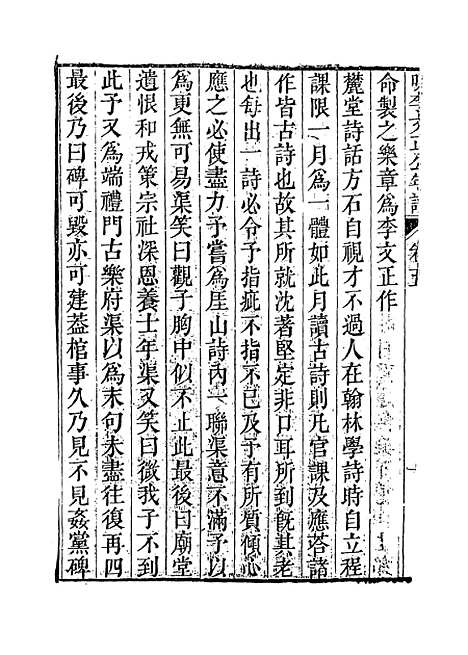 明李文正公年譜 卷五
命製之樂章爲李文正作
麓堂詩話方石自視才不過人在翰林學詩時自立程
課限一月爲一體如此月讀古詩則凡官課及應荅諸
作皆古詩也故其所就沈著堅定非口耳所到旣其老
也每出一詩必令予指疵不指不已及予有所質傾心
應之必使盡力予嘗爲厓山詩內一聯渠意不滿予以
爲更無可易渠笑曰觀子胸中似不止此最後曰廟堂
遺恨和戎策宗社深恩養士年渠又笑曰微我子不到
此予又爲端禮門古樂府渠以爲末句未盡往復再四
最後乃曰碑可毀亦可建葢棺事久乃見不見姦黨碑